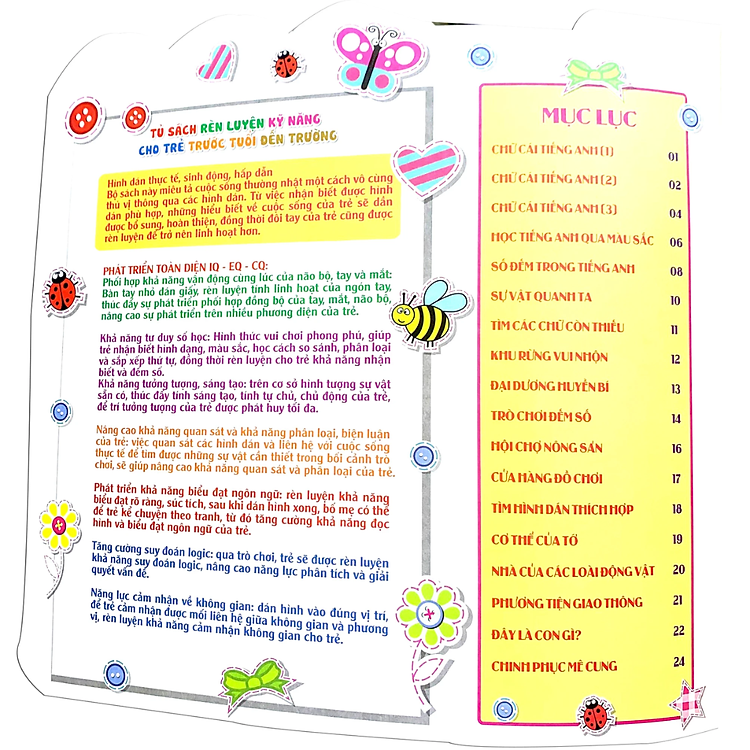 TỦ SÁCH RÈN LUYỆN KỸ NĂNG
CHO TRẺ TRƯỚC TUỔI ĐẾN TRƯỜNG
Hình dán thực tế, sinh động, hấp dẫn
Bộ sách này miêu tả cuộc sống thường nhật một cách vô cùng
thú vị thông qua các hình dán. Từ việc nhận biết được hình
dán phù hợp, những hiểu biết về cuộc sống của trẻ sẽ dần
được bổ sung, hoàn thiện, đồng thời đôi tay của trẻ cũng được
rèn luyện để trở nên linh hoạt hơn.
PHÁT TRIỂN TOÀN DIỆN IQ - EQ - CQ:
Phối hợp khả năng vận động cùng lúc của não bộ, tay và mắt:
Bàn tay nhỏ dán giấy, rèn luyện tính linh hoạt của ngón tay,
thúc đẩy sự phát triển phối hợp đồng bộ của tay, mắt, não bộ,
nâng cao sự phát triển trên nhiều phương diện của trẻ.
Khả năng tư duy số học: Hình thức vui chơi phong phú, giúp
trẻ nhận biết hình dạng, màu sắc, học cách so sánh, phân loại
và sắp xếp thứ tự, đồng thời rèn luyện cho trẻ khả năng nhận
biết và đếm số.
Khả năng tưởng tượng, sáng tạo: trên cơ sở hình tượng sự vật
sẵn có, thúc đẩy tính sáng tạo, tính tự chủ, chủ động của trẻ,
để trí tưởng tượng của trẻ được phát huy tối đa.
Nâng cao khả năng quan sát và khả năng phân loại, biện luận
của trẻ: việc quan sát các hình dán và liên hệ với cuộc sống
thực tế để tìm được những sự vật cần thiết trong bối cảnh trò
chơi, sẽ giúp nâng cao khả năng quan sát và phân loại của trẻ.
Phát triển khả năng biểu đạt ngôn ngữ: rèn luyện khả năng
biểu đạt rõ ràng, súc tích, sau khi dán hình xong, bố mẹ có thể
để trẻ kể chuyện theo tranh, từ đó tăng cường khả năng đọc
hình và biểu đạt ngôn ngữ của trẻ.
Tăng cường suy đoán logic: qua trò chơi, trẻ sẽ được rèn luyện
khả năng suy đoán logic, nâng cao năng lực phân tích và giải
quyết vấn đề.
Năng lực cảm nhận về không gian: dán hình vào đúng vị trí,
để trẻ cảm nhận được mối liên hệ giữa không gian và phương
vị, rèn luyện khả năng cảm nhận không gian cho trẻ.
MỤC LỤC
CHỮ CÁI TIẾNG ANH (1) 01
CHỮ CÁI TIẾNG ANH (2) 02
CHỮ CÁI TIẾNG ANH (3) 04
HỌC TIẾNG ANH QUA MÀU SẮC 06
SỐ ĐẾM TRONG TIẾNG ANH 08
SỰ VẬT QUANH TA 10
TÌM CÁC CHỮ CÒN THIẾU 11
KHU RỪNG VUI NHỘN 12
ĐẠI DƯƠNG HUYỀN BÍ 13
TRÒ CHƠI ĐẾM SỐ 14
HỘI CHỢ NÔNG SẢN 16
CỬA HÀNG ĐỒ CHƠI 17
TÌM HÌNH DÁN THÍCH HỢP 18
CƠ THỂ CỦA TỚ 19
NHÀ CỦA CÁC LOÀI ĐỘNG VẬT 20
PHƯƠNG TIỆN GIAO THÔNG 21
ĐÂY LÀ CON GÌ? 22
CHINH PHỤC MÊ CUNG 24